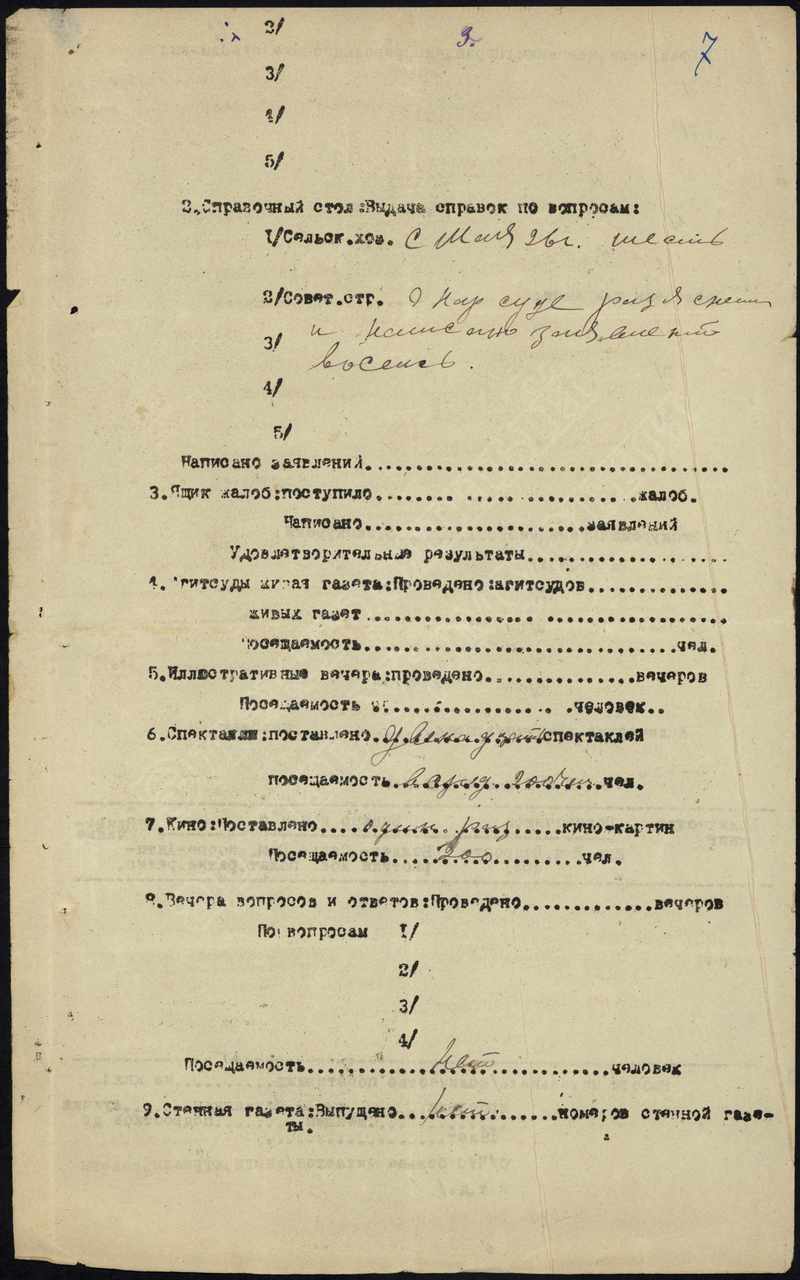 2/ 3. 7
3/
4/
5/
2.Справочный стол:Выдача справок по вопросам:
1/Сельск.хоз. С Мая 26г. шесть
2/Совет.стр. О Нар суде
3/ и написано
восемь.
4/
5/
Написано заявлений........................................
3.Ящик жалоб:поступило........ ..... .............жалоб.
Написано........................заявлений
Удовлетворительные результаты......................
4.Агитсуды живая газета:Проведено:агитсудов...............
живых газет .................. ....................
Посещаемость..................................чел.
5.Иллюстративные вечера:проведено................вечеров
Посещаемость .................... .человек..
6.Спектакли:поставлено спектаклей
посещаемость чел.
7.Кино:Поставлено....один раз.....кино-картин
Посещаемость.....200..........чел.
8.Вечера вопросов и ответов:Проведено..............вечеров
По вопросам 1/
2/
3/
4/
Посещаемость..............Нет..................человек
9.Стенная газета:Выпущено...нет.........номеров стенной газе-
ты.